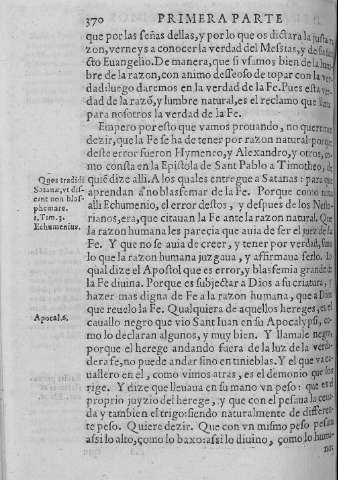 370 PRIMERA PARTE
que por las señas dellas, y por lo que os dictara la justa ra
zon, verneys a conocer la verdad del Messias, y de su san
cto Euangelio. De manera, que si vsamos bien de la lum
bre de la razon, con animo desseoso de topar con la ver
dad: luego daremos en la verdad de la Fe. Pues esta ver
dad de la razõ, y lumbre natural, es el reclamo que llama
para nosotros la verdad de la Fe.
Empero por esto que vamos prouando, no queremos
dezir, que la Fe se ha de tener por razon natural: porque
deste error fueron Hymeneo, y Alexandro, y otros, co
mo consta en la Epistola de Sant Pablo a Timotheo, de
Quos tradidi
quiẽ dize alli. A los quales entregue a Satanas: para que
Satanæ, vt dis
aprendan a no blasfemar de la Fe. Porque como nota
cant non blas
alli Echumenio, el error destos, y despues de los Nesto
phemare.
rianos, era, que citauan la Fe ante la razon natural. Que
1. Tim. 1.
la razon humana les parecia que auia de ser el juez de la
Echumenius.
Fe. Y que no se auia de creer, y tener por verdad, sino
lo que la razon humana juzgaua, y affirmaua serlo. Lo
qual dize el Apostol que es error, y blasfemia grande de
la Fe diuina. Porque es subjectar a Dios a su criatura, y
hazer mas digna de Fe a la razon humana, que a Dios
que reuelo la Fe. Qualquiera de aquellos hereges, es el
Apocal. 6.
cauallo negro que vio Sant Iuan en su Apocalypsi, co-
mo lo declaran algunos, y muy bien. Y llamale negro,
porque el herege andando fuera de la luz de la verda
dera fe, no puede andar sino en tinieblas. Y el que va ca
uallero en el, como vimos atras, es el demonio que los
rige. Y dize que lleuaua en su mano vn peso: que es el
proprio juyzio del herege, y que con el pesaua la ceua
da y tambien el trigo: siendo naturalmente de differen-
te peso. Quiere dezir. Que con vn mismo peso pesaua
assi lo alto, como lo baxo: assi lo diuino, como lo huma
no.